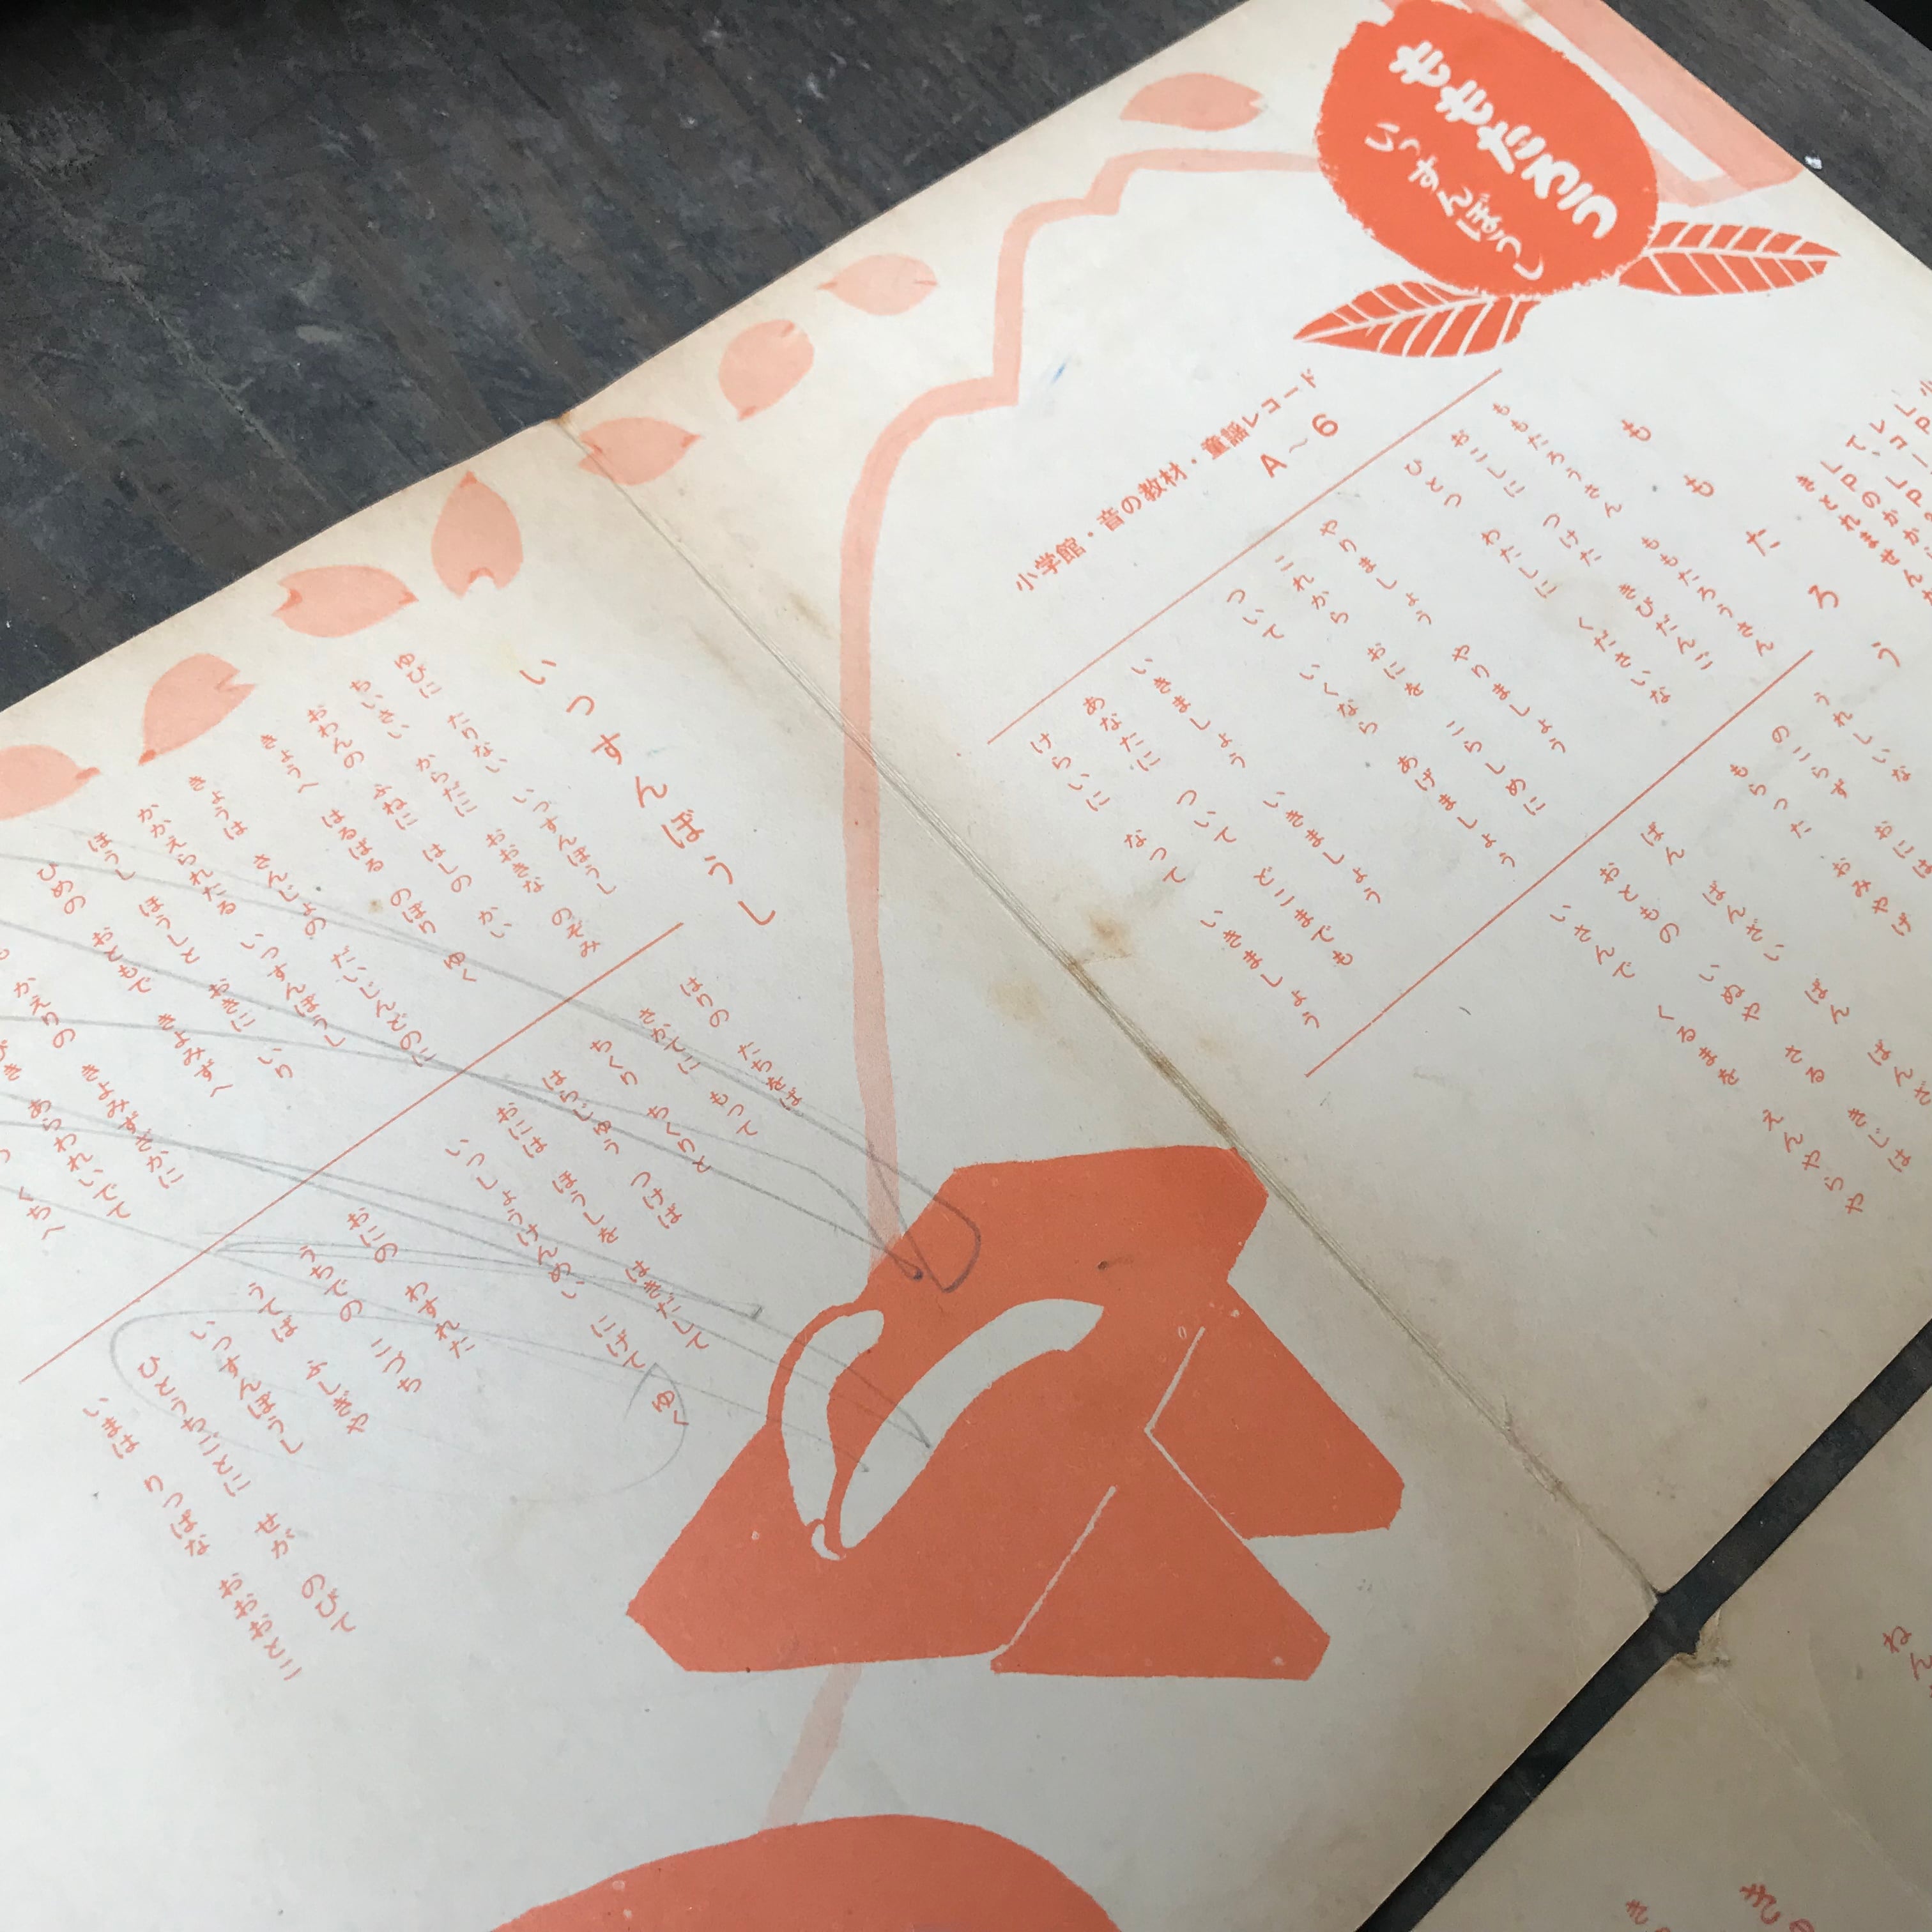 ももたろう
いっすんぼうし
小学館・音の教材・童謡レコード
A〜6
ももたろう
ももたろうさん ももたろうさん
おこしに つけた きびだんご
ひとつ わたしに くださいな
やりましょう やりましょう
これから おにを こらしめに
ついて いくなら あげましょう
いきましょう いきましょう
あなたに ついて どこまでも
けらいに なって いきましょう
うれしいな
のこらず おには
もらった おみやげ
ばん ばんざい ばん ばんざ
おともの いぬや さる きじは
いさんで くるまを えんやらや
いっすんぼうし
ゆびに たりない いっすんぼうし
ちいさい からだに おおきな のぞみ
おわんの ふねに はしの かい
きょうへ はるばる のぼり ゆく
きょうは さんじょの だいじんどのに
かかえられたる いっすんぼうし
ほうし ほうしと おきに いり
ひめの おともで きよみずへ
かえりの きよみずざかに
あらわれいでて
くちへ
はりの たちをば
さかてに もって
ちくり ちくりと
はらじゅう つけば
おには ほうしを はきだして
いっしょうけんめい にげて ゆく
おにの わすれた
うちでの こづち
うてば ふしぎや
いっすんぼうし
ひとうちごとに せが のびて
いまは りっぱな おおおとこ